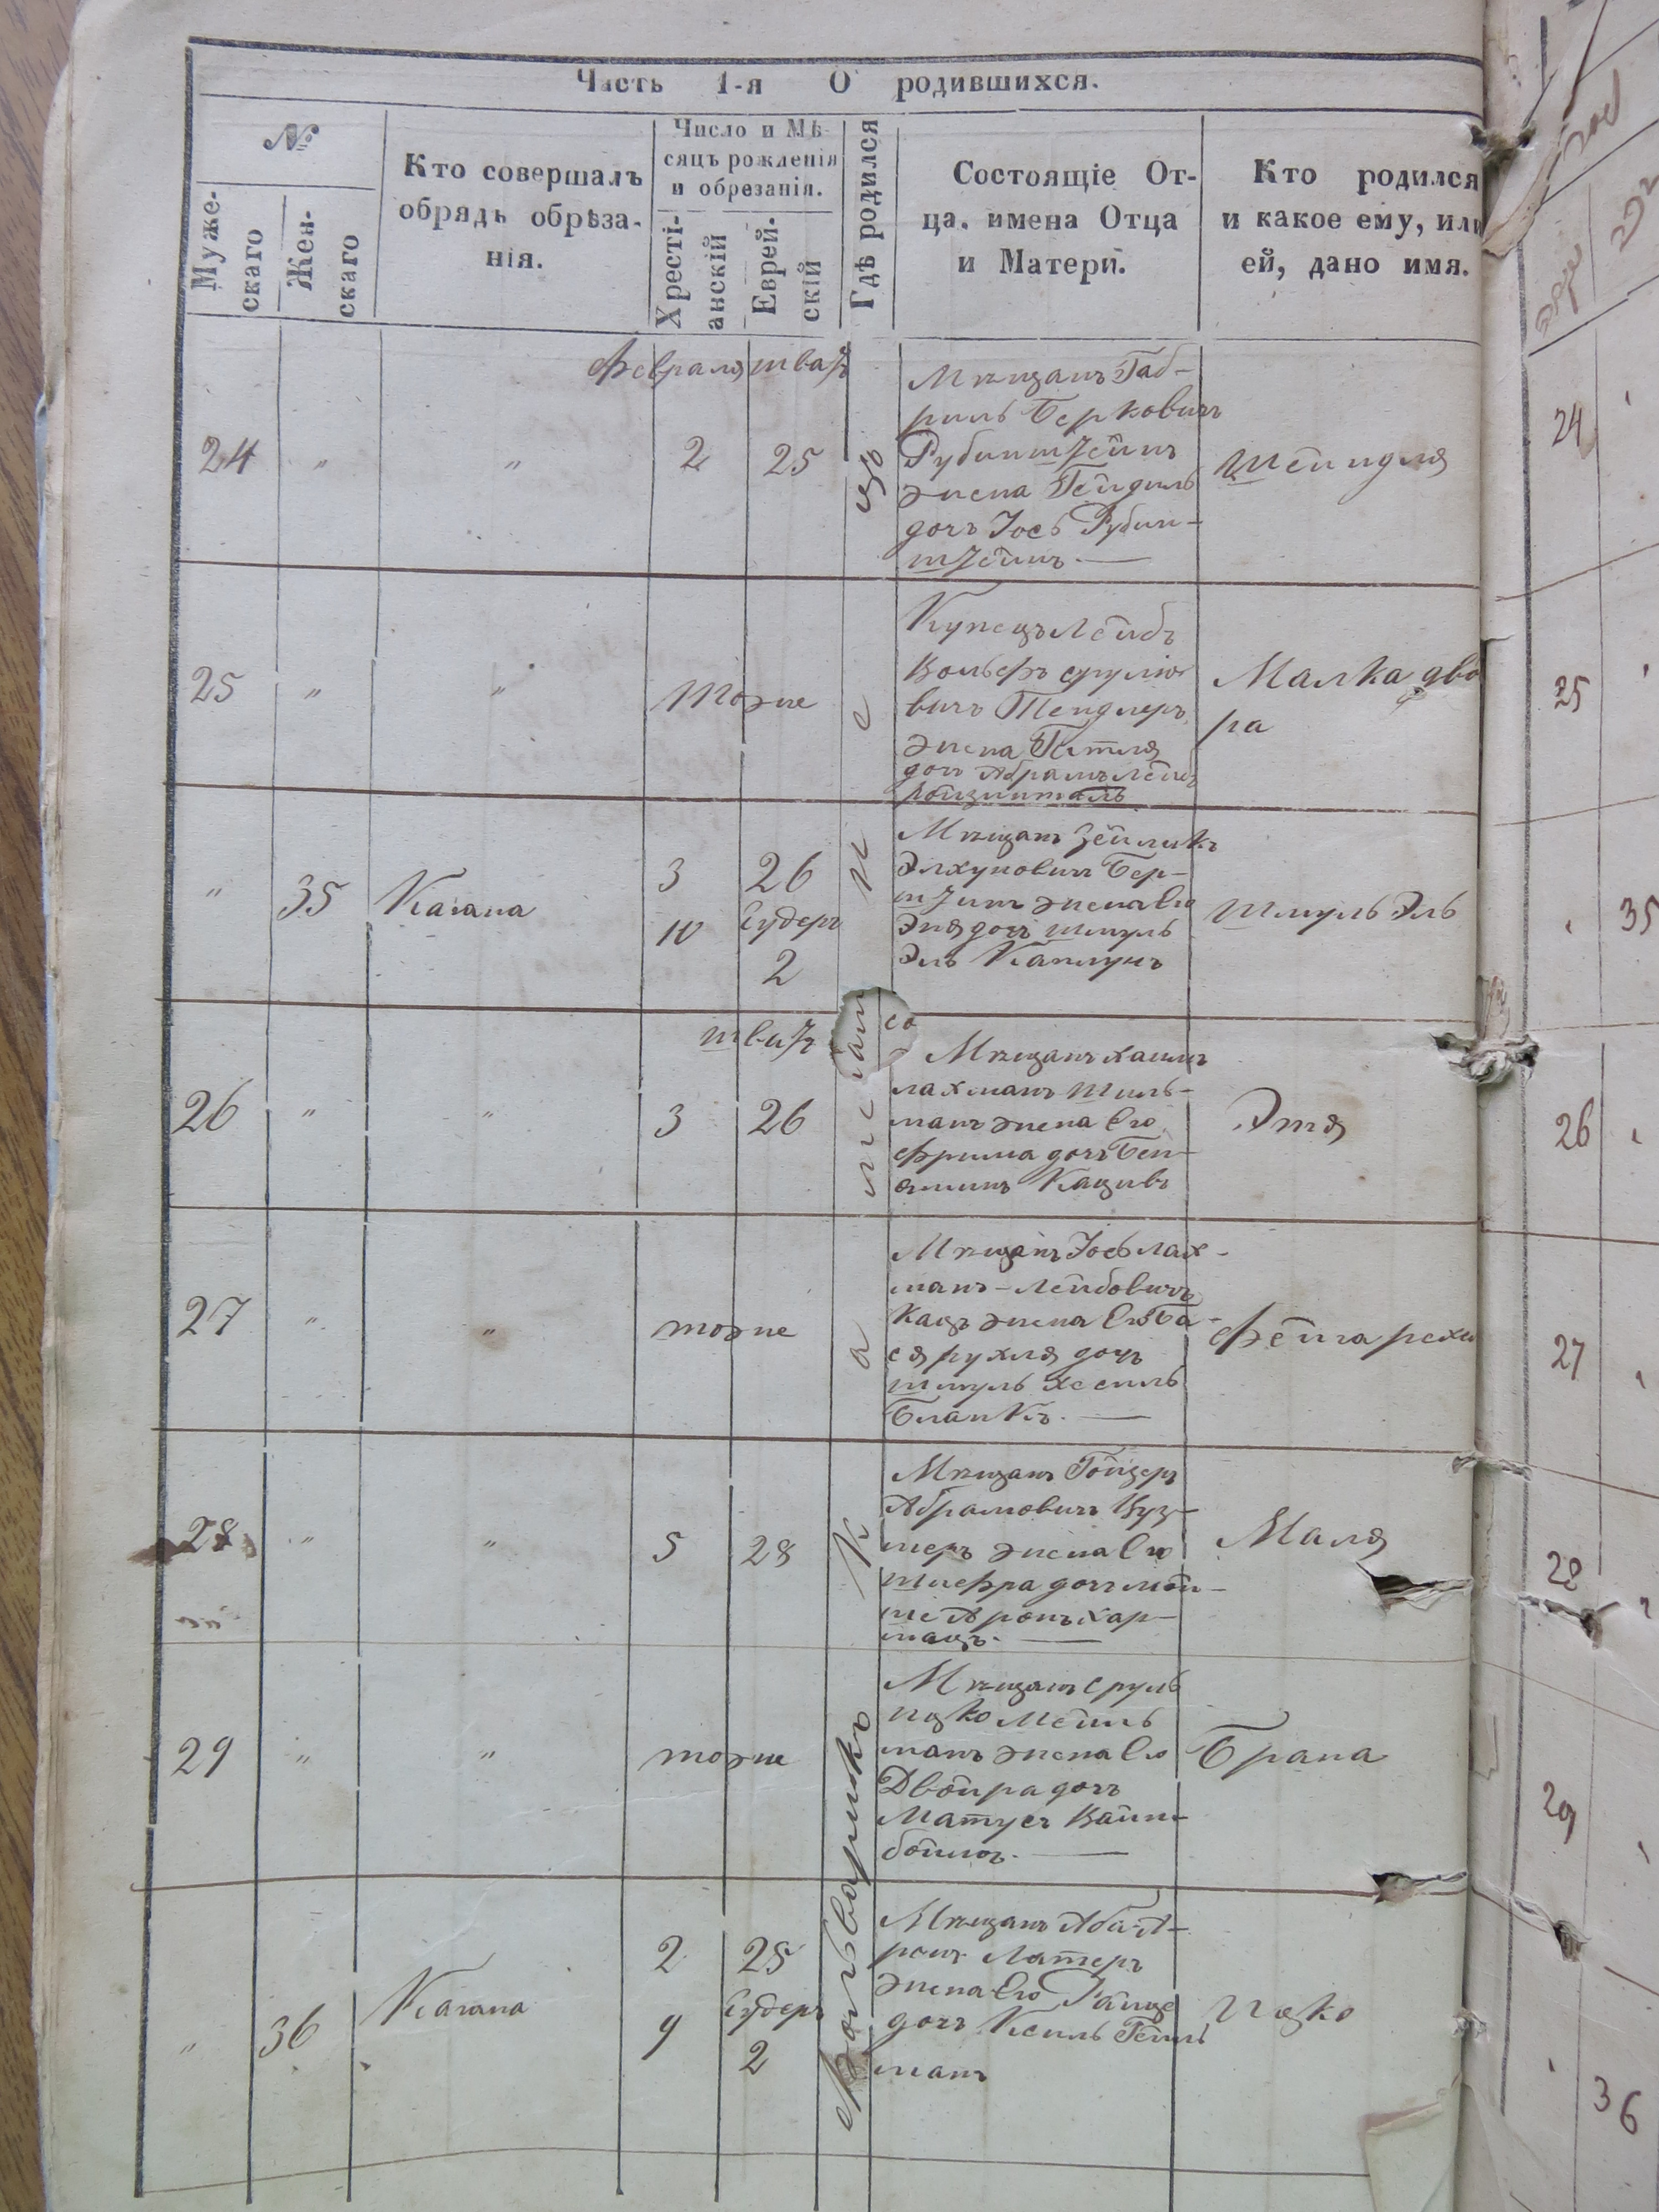 Часть 1-я О родившихся.
№
Мужескаго
Женскаго
Кто совершалъ
обрядъ обрѣза-
нія.
Число и Мѣ-
сяцъ рожденія
и обрезанія.
Хресті-
анскій
Еврей-
скій
Гдѣ родился
Состоящіе От-
ца, имена Отца
и Матери.
Кто родился
и какое ему, или
ей, дано имя.
Февраля шватъ
24 " " 2 25
Мещанъ Габ-
риль Берковичъ
Рубинштейнъ
жена Гендиль
дочь Іось Рубин-
штейнъ. —
Шейндля
25 " " тоже
Купецъ Лейбъ
Вольфъ срулио
вичъ Тендлеръ
жена Гитля
доч Абрамъ Лейб
Малка дво
ра
" 35 Кагана
3 26
10 Гудеръ
2
Мещанъ Зейликъ
Элхуновичъ Бер-
штинъ жена Его
Эня дочь шмуль
Эль Каплунъ
Шмуль Эль
шватъ
26 " " 3 26
Мещанъ хаимъ
лахманъ Шиль-
манъ жена Его
Фрима дочь Бен-
яминъ Кацивъ
Этя
27 " " тоже
Мещанъ Іось лах-
манъ-Лейбовичъ
Кацъ жена Его Ба-
ся рухля дочь
шмуль хескль
Бланкъ. —
Фейга рехи
28 " " 5 28
Мещанъ Гойзеръ
Абрамовичъ Куш-
неръ жена Его
Шифра дочь мой-
ше Аронъ хар-
мацъ. —
Маля
29 " " тоже
Мещанъ сруль
ицко Мейль
манъ жена Его
Двойра дочь
Матусъ Вайн-
боймъ. —
Брана
" 36 Кагана
2 25
9 Гудеръ
2
Мещанъ Аба-А-
ронъ Латеръ
жена Его
дочь Ксиль Гейль
манъ
Ицко
24
25
35
26
27
28
29
36